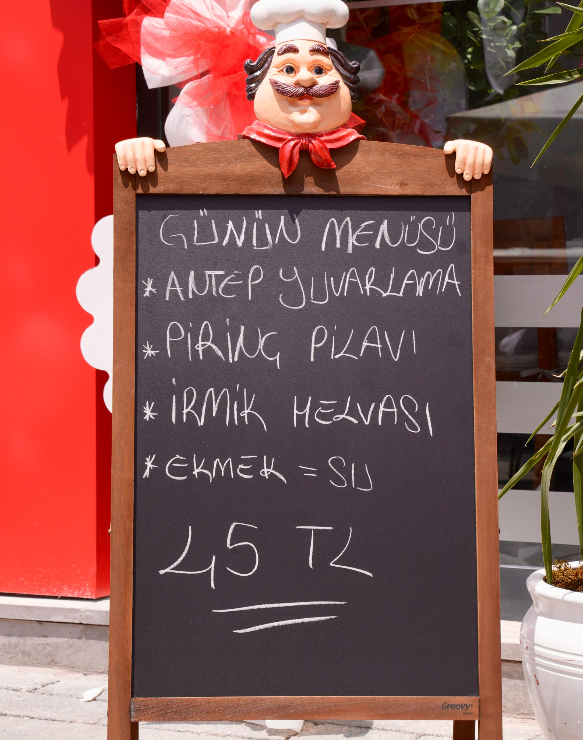 GÜNÜN MENÜSÜ
* ANTEP YUVARLAMA
* PİRİNÇ PİLAVI
* İRMİK HELVASI
* EKMEK = SU
45 TL
Groovy